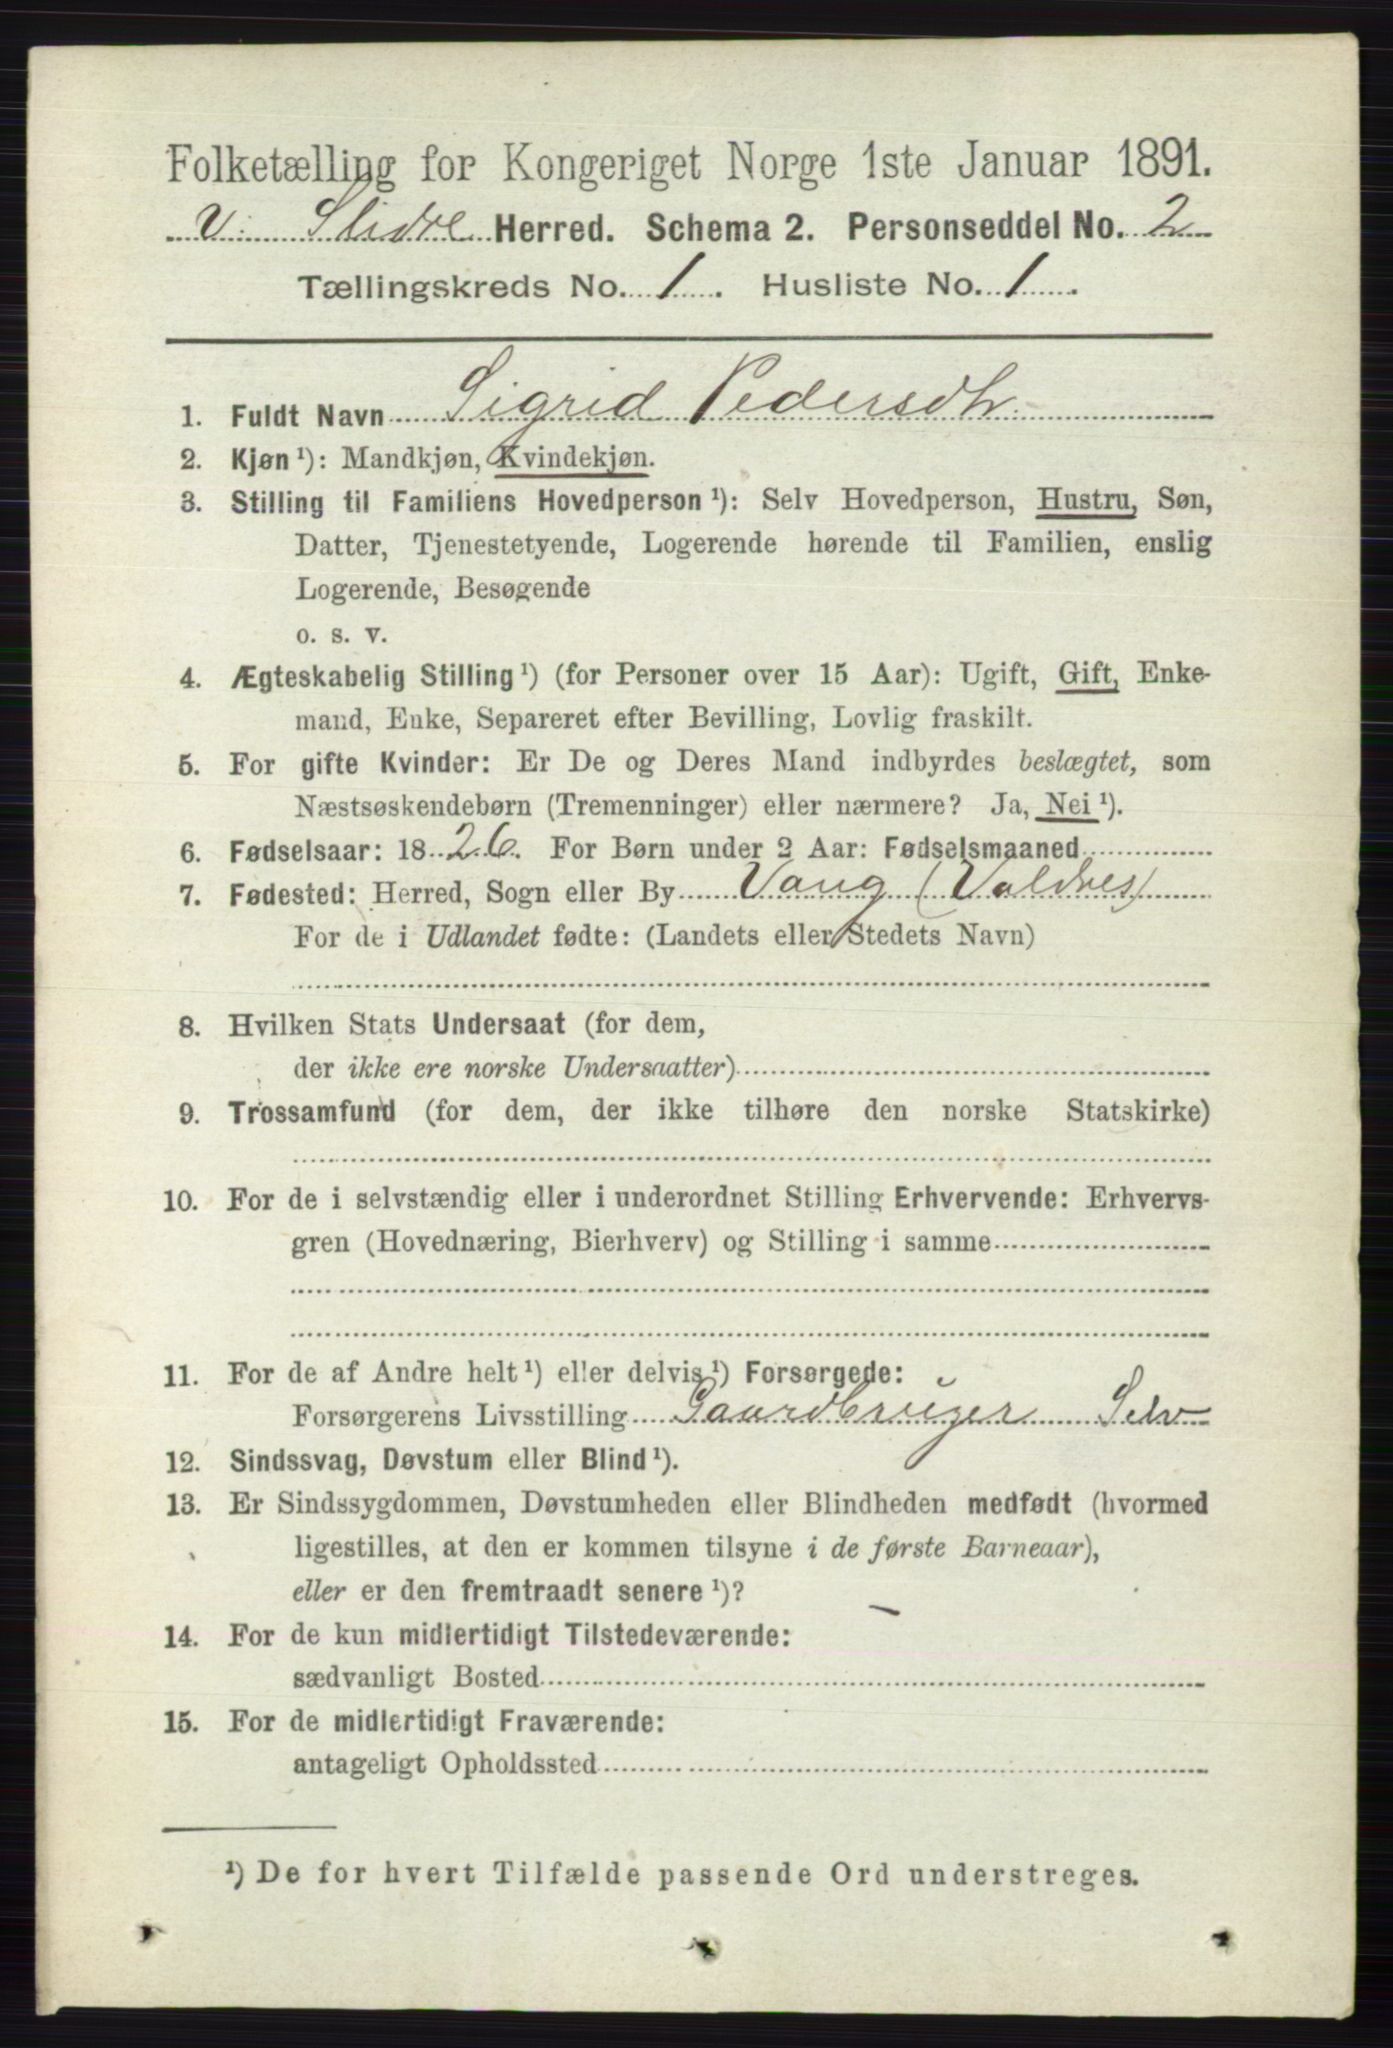 Folketælling for Kongeriget Norge 1ste Januar 1891.
V. Slidre Herred. Schema 2. Personseddel No. 2
Tællingskreds No. 1. Husliste No. 1.
1. Fuldt Navn Sigrid Pedersdtr
2. Kjøn ¹): Mandkjøn, Kvindekjøn.
3. Stilling til Familiens Hovedperson ¹): Selv Hovedperson, Hustru, Søn,
Datter, Tjenestetyende, Logerende hørende til Familien, enslig
Logerende, Besøgende
o. s. v.
4. Ægteskabelig Stilling ¹) (for Personer over 15 Aar): Ugift, Gift, Enke-
mand, Enke, Separeret efter Bevilling, Lovlig fraskilt.
5. For gifte Kvinder: Er De og Deres Mand indbyrdes beslægtet, som
Næstsøskendebørn (Tremenninger) eller nærmere? Ja, Nei ¹).
6. Fødselsaar: 1826. For Børn under 2 Aar: Fødselsmaaned
7. Fødested: Herred, Sogn eller By Vang (Valdres)
For de i Udlandet fødte: (Landets eller Stedets Navn)
8. Hvilken Stats Undersaat (for dem,
der ikke ere norske Undersaatter)
9. Trossamfund (for dem, der ikke tilhøre den norske Statskirke)
10. For de i selvstændig eller i underordnet Stilling Erhvervende: Erhvervs-
gren (Hovednæring, Bierhverv) og Stilling i samme
11. For de af Andre helt ¹) eller delvis ¹) Forsørgede:
Forsørgerens Livsstilling Gaardbruger Selv
12. Sindssvag, Døvstum eller Blind ¹).
13. Er Sindssygdommen, Døvstumheden eller Blindheden medfødt (hvormed
ligestilles, at den er kommen tilsyne i de første Barneaar),
eller er den fremtraadt senere ¹)?
14. For de kun midlertidigt Tilstedeværende:
sædvanligt Bosted
15. For de midlertidigt Fraværende:
antageligt Opholdssted
¹) De for hvert Tilfælde passende Ord understreges.